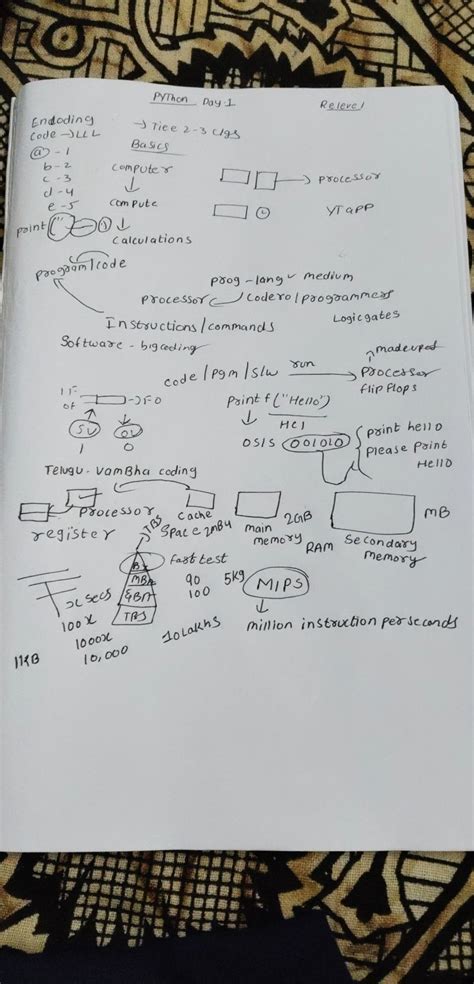 Python Day 1 Relevel
Encoding
Code → LLL → Tiee 2-3 clgs
Basics
a - 1
b - 2
c - 3
d - 4
e - 5
computer → processor
compute YT app
print
calculations
program/code
prog - lang medium
processor Coders/programmers
Instructions/commands Logicgates
Software - big coding
code/pgm/s/w run → processor madeup of
flip flops
printf ("Hello")
5V 0V
1 0
HCI
OSIS 001010 { print hello
please print
Hello
Telugu - Vambha coding
processor cache main 2GB MB
register space 2MB4 memory RAM Secondary
memory
TBS
fasttest
MBA 90 5kg MIPS
GBA 100
x secs
100x TBS 10 Lakhs million instruction per seconds
1000x
11KB 10,000